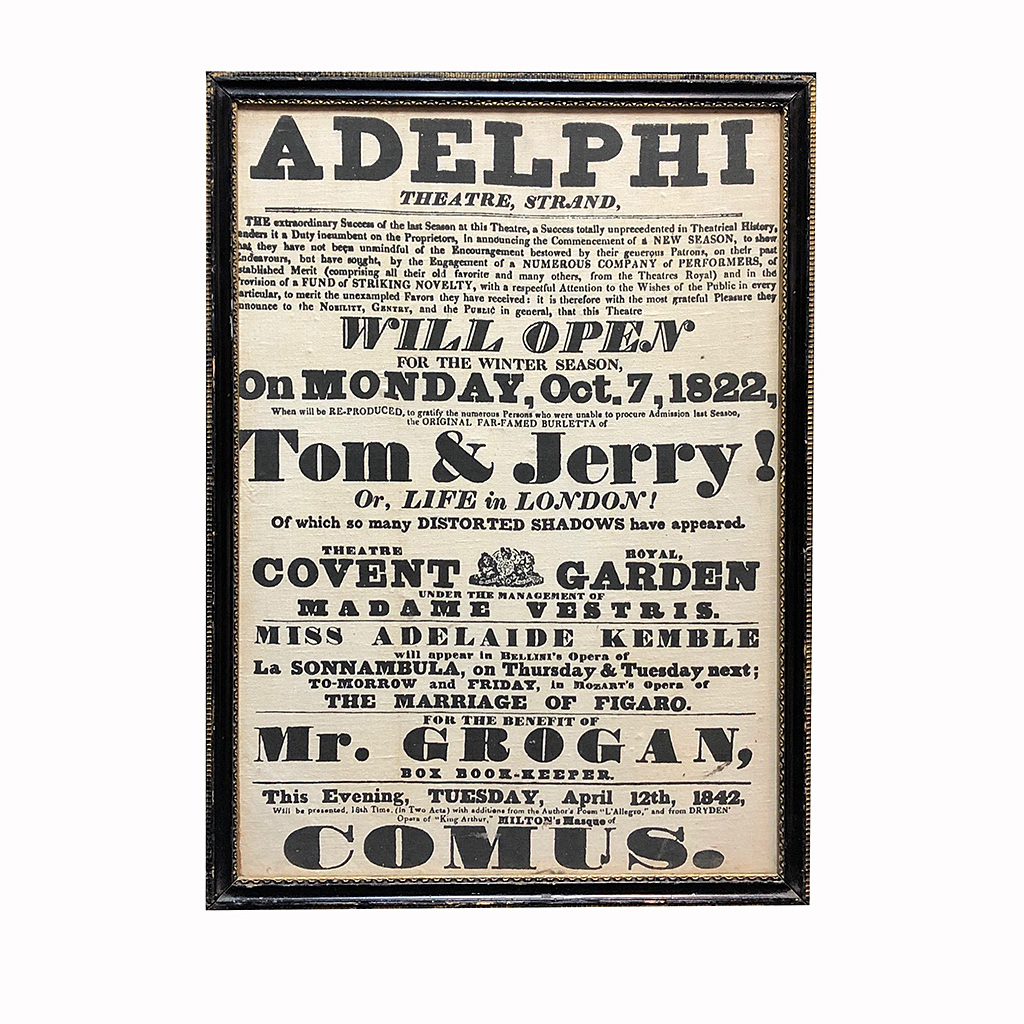 ADELPHI
THEATRE, STRAND,
THE extraordinary Success of the last Season at this Theatre, a Success totally unprecedented in Theatrical History,
enders it a Duty incumbent on the Proprietors, in announcing the Commencement of a NEW SEASON, to show
hat they have not been unmindful of the Encouragement bestowed by their generous Patrons, on their past
Endeavours, but have sought, by the Engagement of a NUMEROUS COMPANY of PERFORMERS, of
stablished Merit (comprising all their old favorite and many others, from the Theatres Royal) and in the
rovision of a FUND of STRIKING NOVELTY, with a respectful Attention to the Wishes of the Public in every
articular, to merit the unexampled Favors they have received: it is therefore with the most grateful Pleasure they
nnounce to the NOBILITY, GENTRY, and the PUBLIC in general, that this Theatre
WILL OPEN
FOR THE WINTER SEASON,
On MONDAY, Oct. 7, 1822,
When will be RE-PRODUCED, to gratify the numerous Persons who were unable to procure Admission last Season,
the ORIGINAL FAR-FAMED BURLETTA of
Tom & Jerry!
Or, LIFE in LONDON!
Of which so many DISTORTED SHADOWS have appeared.
THEATRE ROYAL,
COVENT GARDEN
UNDER THE MANAGEMENT OF
MADAME VESTRIS.
MISS ADELAIDE KEMBLE
will appear in BELLINI'S Opera of
La SONNAMBULA, on Thursday & Tuesday next;
TO-MORROW and FRIDAY, in MOZART'S Opera of
THE MARRIAGE OF FIGARO.
FOR THE BENEFIT OF
Mr. GROGAN,
BOX BOOK-KEEPER.
This Evening, TUESDAY, April 12th, 1842,
Will be presented, 18th Time, (in Two Acts) with additions from the Author's Poem "L'Allegro," and from DRYDEN'
Opera of "King Arthur," MILTON's Masque of
COMUS.